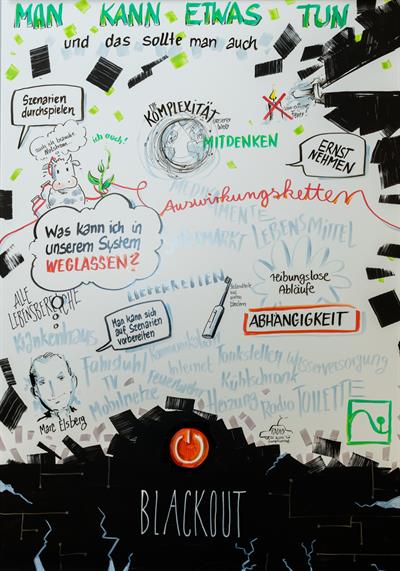 MAN KANN ETWAS TUN
und das sollte man auch
Szenarien
durchspielen
auch ich brauche
Notstrom
ich auch!
DIE
KOMPLEXITÄT
unserer
Welt
MITDENKEN
ERNST
NEHMEN
Auswirkungsketten
MEDIKA
MENTE
LEBENSMITTEL
Was kann ich in
unserem System
WEGLASSEN?
LIEFERKETTEN
reibungslose
Abläufe
ABHÄNGIGKEIT
ALLE
LEBENSBEREICHE
Man kann sich
auf Szenarien
vorbereiten
Krankenhaus
Fahrstuhl
Kommunikation
Tankstellen
Wasserversorgung
TV
Internet
Kühlschrank
Mobilnetze
Feuerwehr
Heizung
Radio
TOILETTE
Marc Elsberg
BLACKOUT